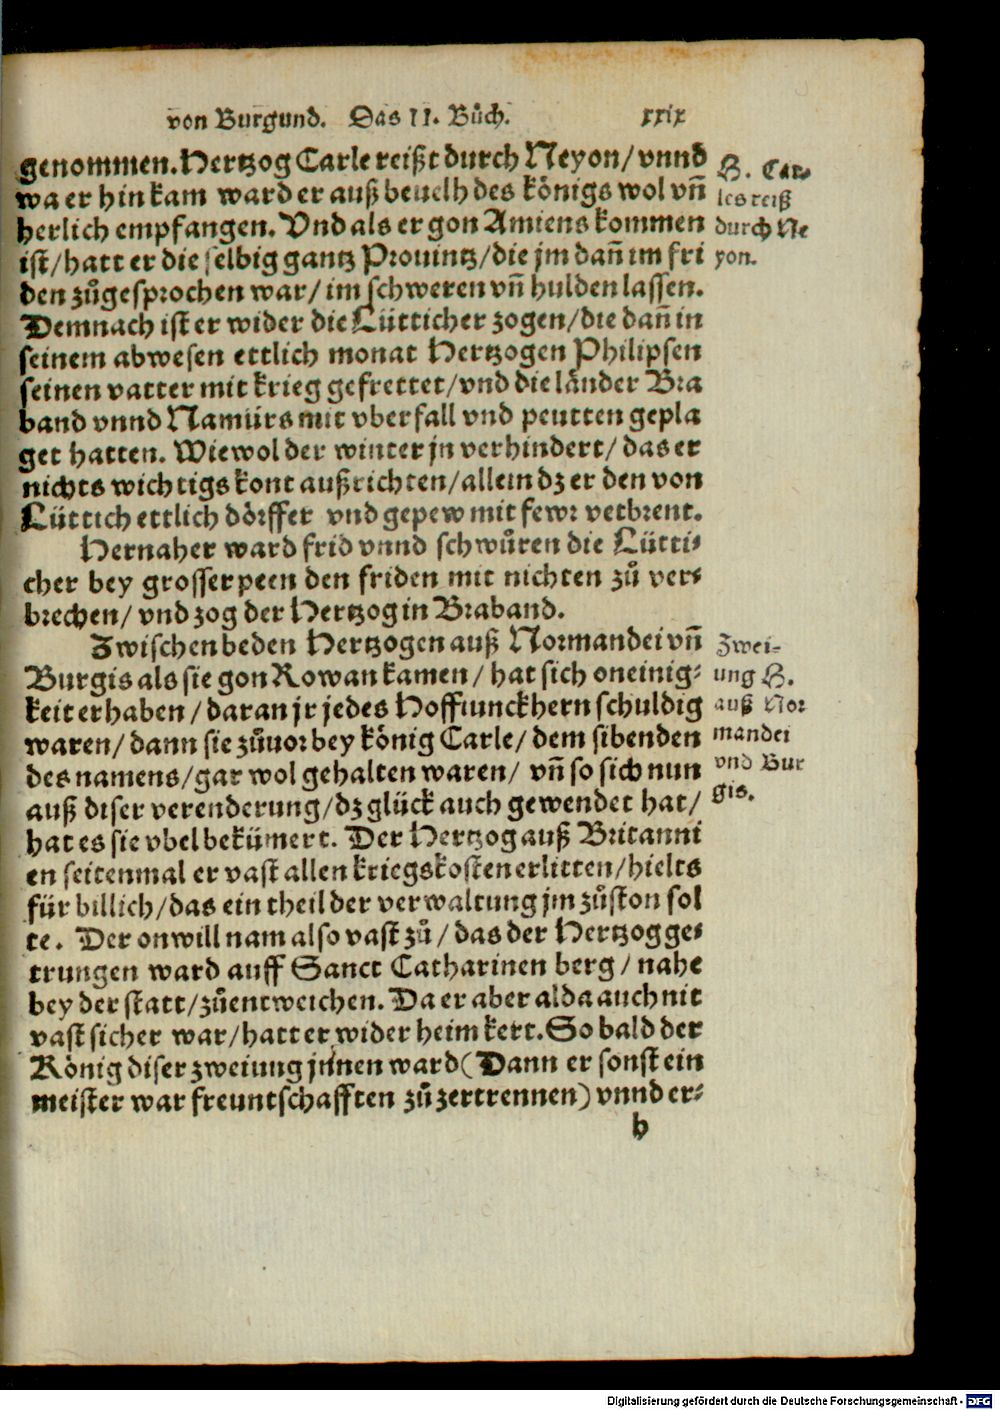 von Burgund. Das II. Bůch. xxix
genommen. Hertzog Carle reißt durch Neyon/ vnnd
wa er hin kam ward er auß beuelh des königs wol vñ
herlich empfangen. Vnd als er gon Amiens kommen
ist/ hatt er die selbig gantz Prouintz/ die jm dañ im fri
den zůgesprochen war/ im schweren vñ hulden lassen.
Demnach ist er wider die Lütticher zogen/ die dañ in
seinem abwesen ettlich monat Hertzogen Philipsen
seinen vatter mit krieg gefrettet/ vnd die länder Bra
band vnnd Namürs mit vberfall vnd peutten gepla
get hatten. Wiewol der winter jn verhindert/ das er
nichts wichtigs kont außrichten/ allein dz er den von
Lüttich ettlich dörffer vnd gepew mit fewr verbrent.
Hernaher ward frid vnnd schwůren die Lütti-
cher bey grosser peen den friden mit nichten zů ver-
brechen/ vnd zog der Hertzog in Braband.
Zwischen beden Hertzogen auß Normandei vñ
Burgis als sie gon Rowan kamen/ hat sich oneinig-
keit erhaben/ daran jr jedes Hoffiunckhern schuldig
waren/ dann sie zůuor bey könig Carle/ dem sibenden
des namens/ gar wol gehalten waren/ vñ so sich nun
auß diser verenderung/ dz glück auch gewendet hat/
hat es sie vbel bekümert. Der Hertzog auß Britanni
en seitenmal er vast allen kriegskosten erlitten/ hielts
für billich/ das ein theil der verwaltung jm zůston sol
te. Der onwill nam also vast zů/ das der Hertzog ge-
trungen ward auff Sanct Catharinen berg/ nahe
bey der statt/ zůentweichen. Da er aber alda auch nit
vast sicher war/ hatt er wider heim kert. So bald der
König diser zweiung jnnen ward (Dann er sonst ein
meister war freuntschafften zů zertrennen) vnnd er-
h
H. Car-
les reiß
durch Ne
yon.
Zwei-
ung H.
auß Nor
mandei
vnd Bur
gis.
Digitalisierung gefördert durch die Deutsche Forschungsgemeinschaft - DFG